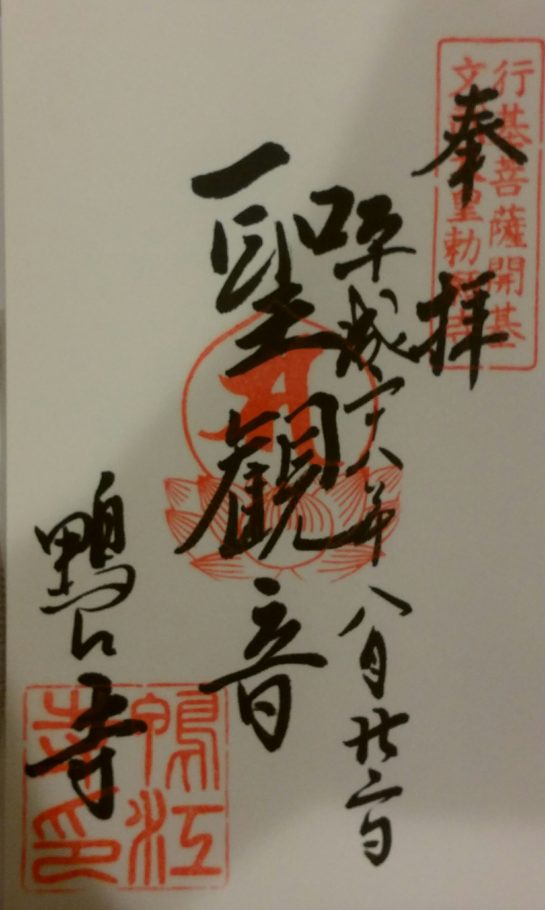 奉拝
行基菩薩開基
文武天皇勅願寺
平成二十八年八月廿二日
聖観音
鴨江寺
鴨江寺印